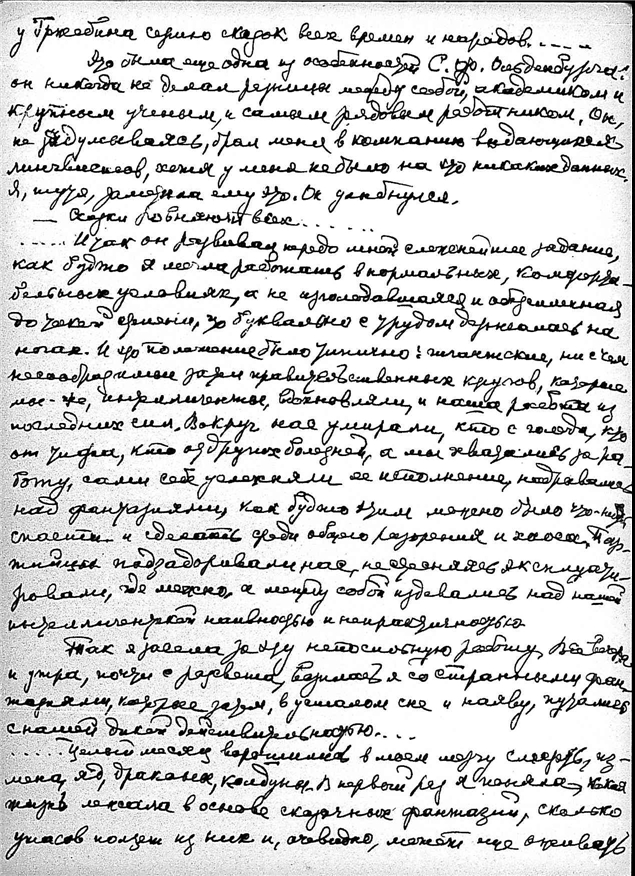 у Гржебина серию сказок всех времен и народов.....
Это была еще одна из особенностей С. Ф. Ольденбурга:
он никогда не делал разницы между собой, академиком и
крупным ученым, и самым рядовым работником. Он,
не задумываясь, брал меня в компанию выдающихся
лингвистов, хотя у меня не было на это никаких данных.
Я, шутя, заметила ему это. Он улыбнулся.
— Сказки ровняют всех.......
..... И так он развивал передо мной сложнейшее задание,
как будто я могла работать в нормальных, комфорта-
бельных условиях, а не проголодавшаяся и обессиленная
до такой степени, что буквально с трудом держалась на
ногах. И это положение было типично: гигантские, ни с чем
несообразимые затеи правительственных кругов, которые
мы-же, интеллигенты, вдохновляли, и наша работа из
последних сил. Вокруг нас умирали, кто с голода, кто
от тифа, кто от других болезней, а мы хватались за ра-
боту, сами себе усложняли ее исполнение, надрывались
над фантазиями, как будто этим можно было что-нибудь
спасти и сделать среди общего разорения и хаоса. Пар-
тийцы подзадоривали нас, не стесняясь эксплуати-
ровали, где можно, а между собой издевались над нашей
интеллигентской наивностью и непрактичностью.
Так я засела за эту непосильную работу. Все вечера
и утра, почти с рассвета, возилась я со странными фан-
тазиями, которые затем, в усталом сне и наяву, путались
с нашей дикой действительностью....
..... Целый месяц ворошились в моем мозгу смерть, из-
мена, яд, драконы, колдуны. В первый раз я поняла, какая
жизнь лежала в основе сказочных фантазий, сколько
ужасов ползет из них и, очевидно, может еще оживать